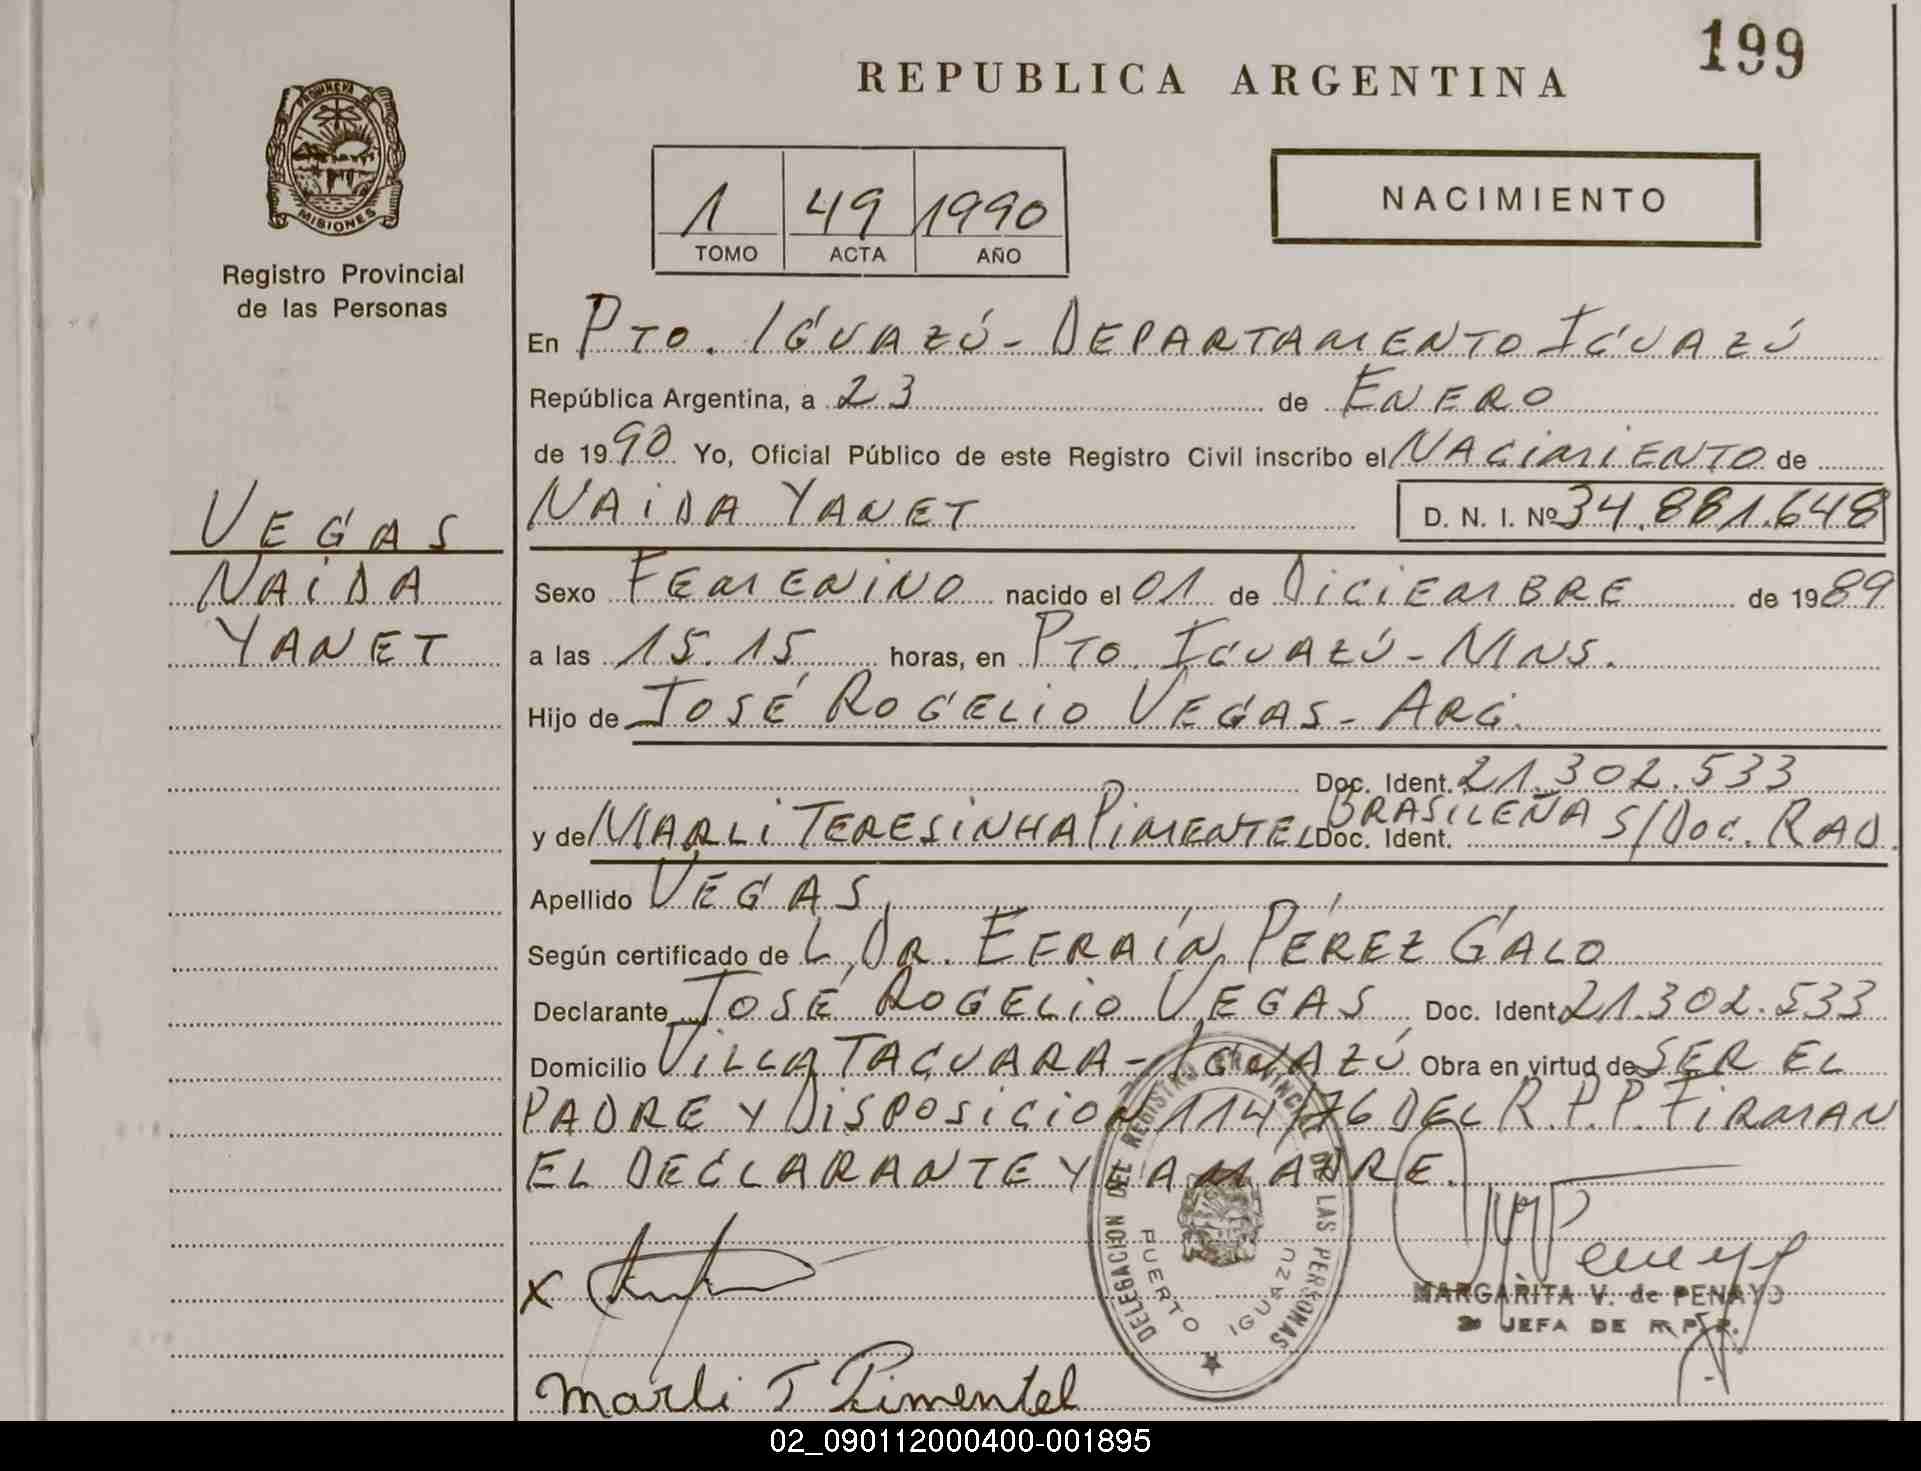 199
REPUBLICA ARGENTINA
PROVINCIA DE
MISIONES
Registro Provincial
de las Personas
1 49 1990
TOMO ACTA AÑO
NACIMIENTO
En PTO. IGUAZÚ - DEPARTAMENTO IGUAZÚ
República Argentina, a 23 de ENERO
de 1990 Yo, Oficial Público de este Registro Civil inscribo el NACIMIENTO de
NAIDA YANET D. N. I. Nº 34.881.648
VEGAS
NAIDA
YANET
Sexo FEMENINO nacido el 01 de DICIEMBRE de 1989
a las 15.15 horas, en PTO. IGUAZÚ - MNS.
Hijo de JOSÉ ROGELIO VEGAS - ARG.
Doc. Ident. 21.302.533
y de MARLI TERESINHA PIMENTEL BRASILEÑA Doc. Ident. S/DOC. RAD.
Apellido VEGAS
Según certificado de L, DR. EFRAÍN PÉREZ GALO
Declarante JOSÉ ROGELIO VEGAS Doc. Ident. 21.302.533
Domicilio VILLA TACUARA - IGUAZÚ Obra en virtud de SER EL
PADRE Y DISPOSICION 114/76 DEL R.P.P. FIRMAN
EL DECLARANTE Y LA MADRE.
DELEGACION DEL REGISTRO PROVINCIAL DE LAS PERSONAS
PUERTO IGUAZU
X
MARGARITA V. de PENAYO
JEFA DE R.P.P.
Marli T Pimentel
02_090112000400-001895